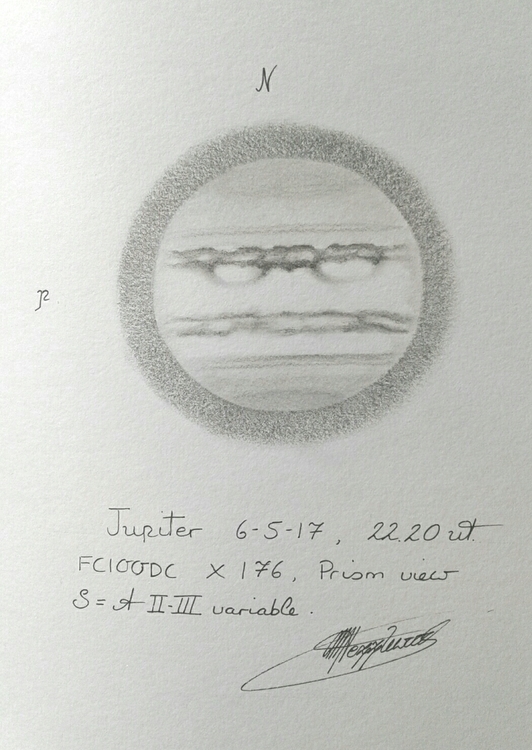 N
p
Jupiter 6-5-17, 22.20 ut.
FC100DC X 176, Prism view
S = A II-III variable.